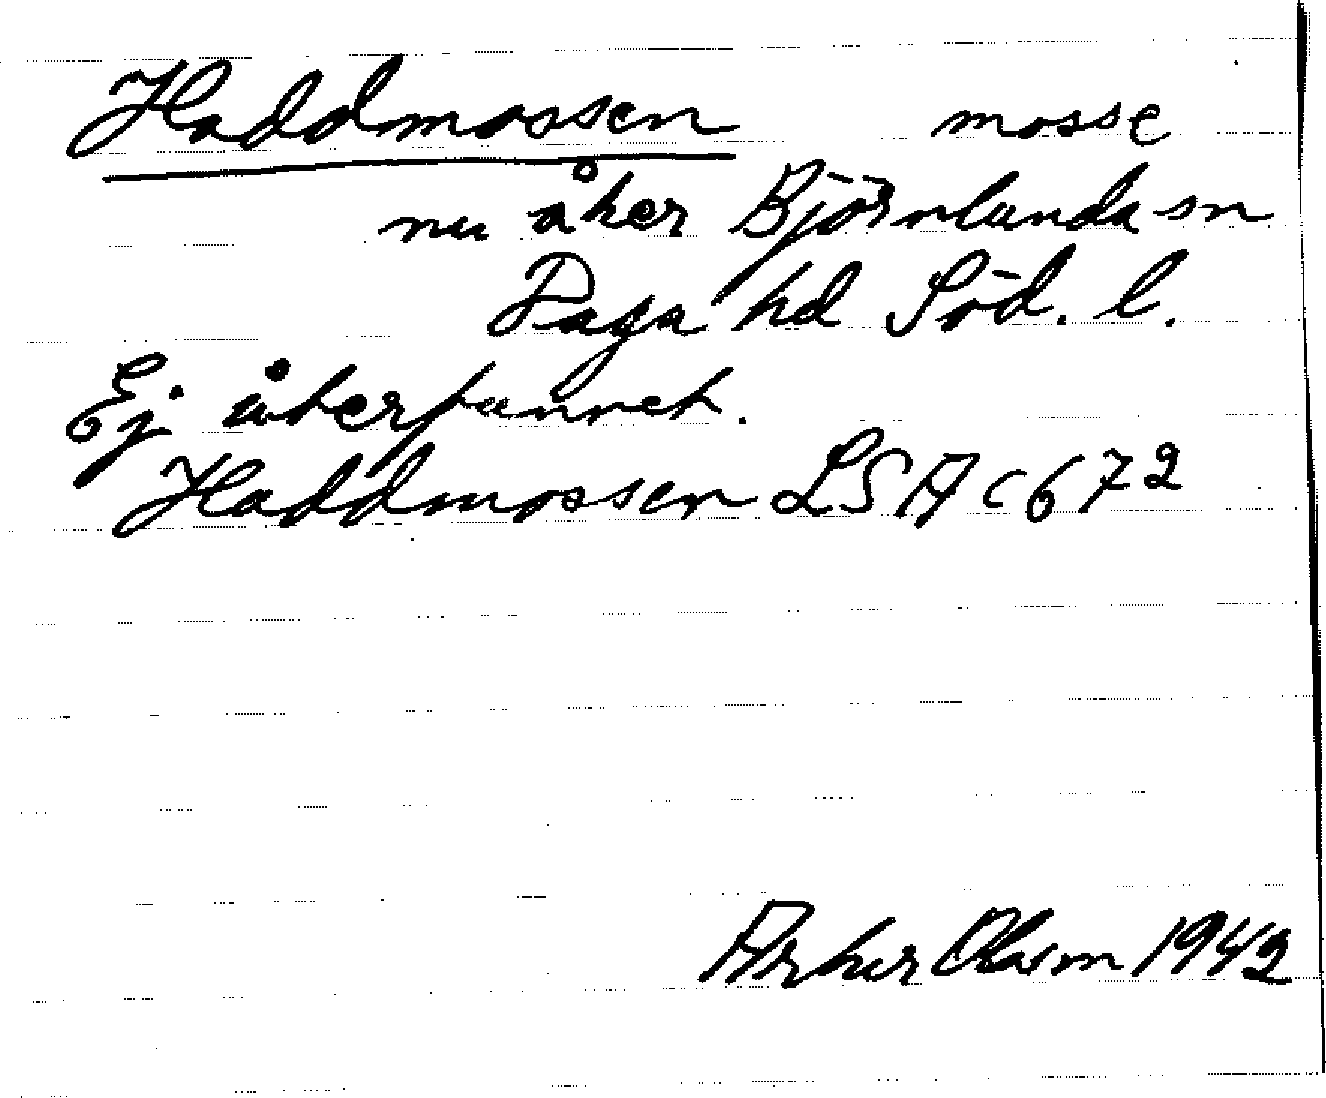 Haddmossen mosse
nu åker Björnlunda sn
Daga hd Söd. l.
Ej återfunnet.
Haddmossen LSA C672
Arthur Olsson 1942